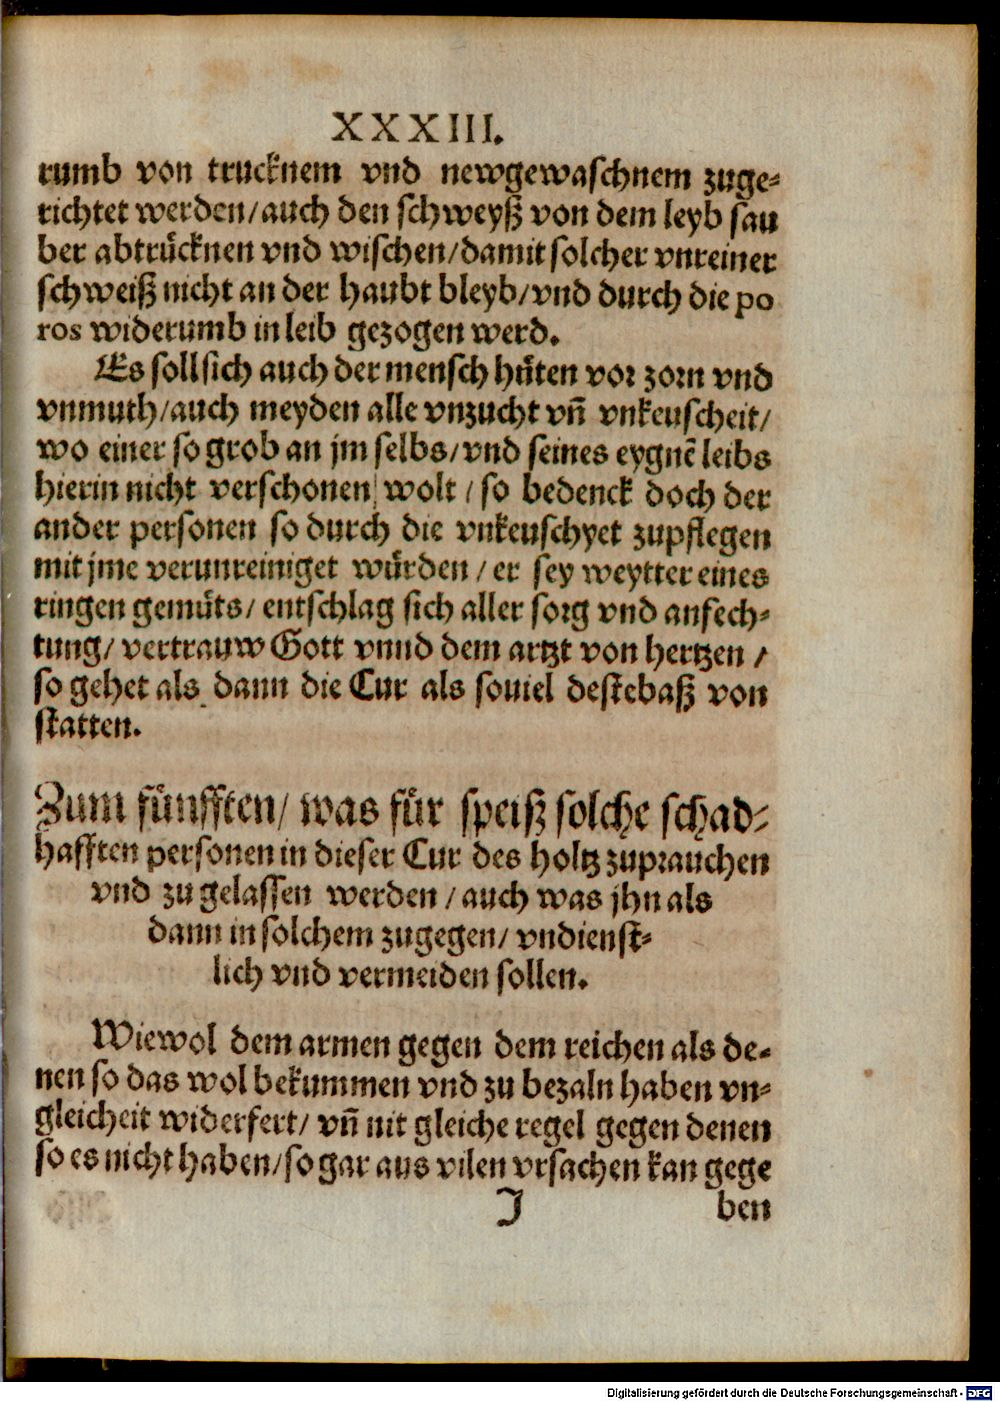 XXXIII.
rumb von trucknem vnd newgewaschnem zuge-
richtet werden/auch den schweyß von dem leyb sau
ber abtruͤcknen vnd wischen/damit solcher vnreiner
schweiß nicht an der haubt bleyb/vnd durch die po
ros widerumb in leib gezogen werd.
Es soll sich auch der mensch huͤten vor zorn vnd
vnmuth/auch meyden alle vnzucht vn̄ vnkeuscheit/
wo einer so grob an jm selbs/vnd seines eygnē leibs
hierin nicht verschonen wolt/so bedenck doch der
ander personen so durch die vnkeuschyet zupflegen
mit jme verunreiniget wuͤrden/er sey weytter eines
ringen gemuͤts/entschlag sich aller sorg vnd anfech-
tung/vertrauw Gott vnnd dem artzt von hertzen/
so gehet als dann die Cur als souiel destebaß von
statten.
Zum fuͤnfften/was fuͤr speiß solche schad-
hafften personen in dieser Cur des holtz zuprauchen
vnd zu gelassen werden/auch was jhn als
dann in solchem zugegen/vndienst-
lich vnd vermeiden sollen.
Wiewol dem armen gegen dem reichen als de-
nen so das wol bekummen vnd zu bezaln haben vn-
gleicheit widerfert/vn̄ nit gleiche regel gegen denen
so es nicht haben/so gar aus vilen vrsachen kan gege
J ben
Digitalisierung gefördert durch die Deutsche Forschungsgemeinschaft - DFG